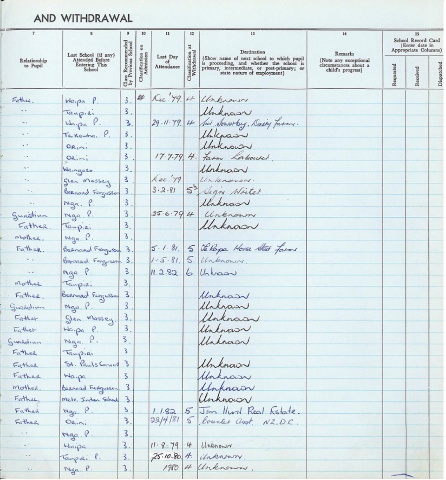 AND WITHDRAWAL
7 8 9 10 11 12 13 14 15
Relationship to Pupil
Last School (if any) Attended Before Entering This School
Class Recommended by Previous School
Classification on Admission
Last Day of Attendance
Classification at Withdrawal
Destination
(Show name of next school to which pupil is proceeding, and whether the school is primary, intermediate, or post-primary; or state nature of employment)
Remarks
(Note any exceptional circumstances about a child's progress)
School Record Card
(Enter date in Appropriate Columns)
Requested
Received
Dispatched
Father Waipa P. 3. Dec '79 4 Unknown
" Taupiri 3. Unknown
" Waipa P. 3. 29.11.79 4
" 3. Unknown
" Orini 3. Unknown
" Orini 3. 17.7.79 4. Farm Labourer.
" 3. Unknown
" Glen Massey 3. Dec '79 Unknown
" Bernard Ferguson 3. 3.2.81 5 Sign Writer
" Nga. P. 3. Unknown
Guardian Nga P. 3. 25.6.79 4 Unknown
Father Taupiri 3. Unknown
Mother Nga P. 3.
Father Bernard Ferguson 3. 5.1.81. 5 Te Rapa Horse Stud Farm
" Bernard Ferguson 3. 1.5.81. 5 Unknown.
" Nga P 3. 11.2.82 6 Unknown
Mother Taupiri 3.
Father. Bernard Ferguson 3. Unknown
Guardian Nga P. 3. Unknown
Father Glen Massey. 3. Unknown
Father Waipa P. 3. Unknown
Guardian Nga. P. 3. Unknown
Father Taupiri 3.
Father St. Pauls Convent 3. Unknown
Father Waipa 3. Unknown
Mother Bernard Ferguson 3. Unknown
Father 3. Unknown
Father Nga. P. 3. 1.1.82 5 Jim Hunt Real Estate.
Father Orini 3. 28/4/81 5 N.Z.D.C.
" Nga P 3.
" Waipa 3. 11.8.79 4 Unknown
" Taupiri P. 3. 25.10.80 4 Unknown
" Nga P 3. 1980 4 Unknown.